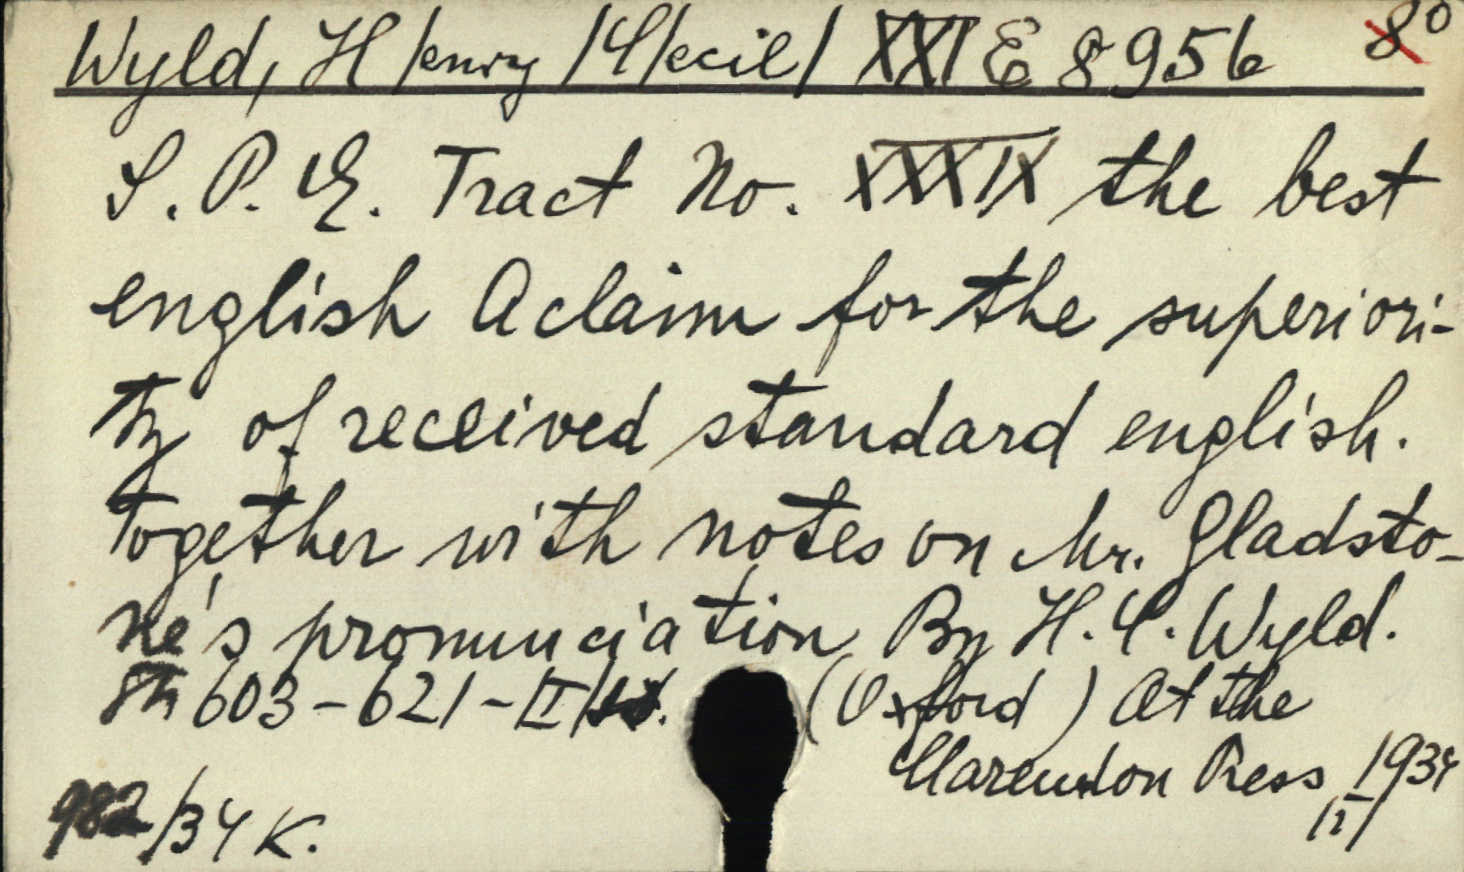 Wyld, H/enry/ C/ecil/ XXI E 8956 8°
S. P. E. Tract No. XXXIX the best
english Aclaim for the superiori-
ty of received standard english.
Together with notes on Mr. Gladsto-
ne's pronunciation By H. C. Wyld.
603-621-II (Oxford) At the
Clarendon Press 1934
982/34 K.